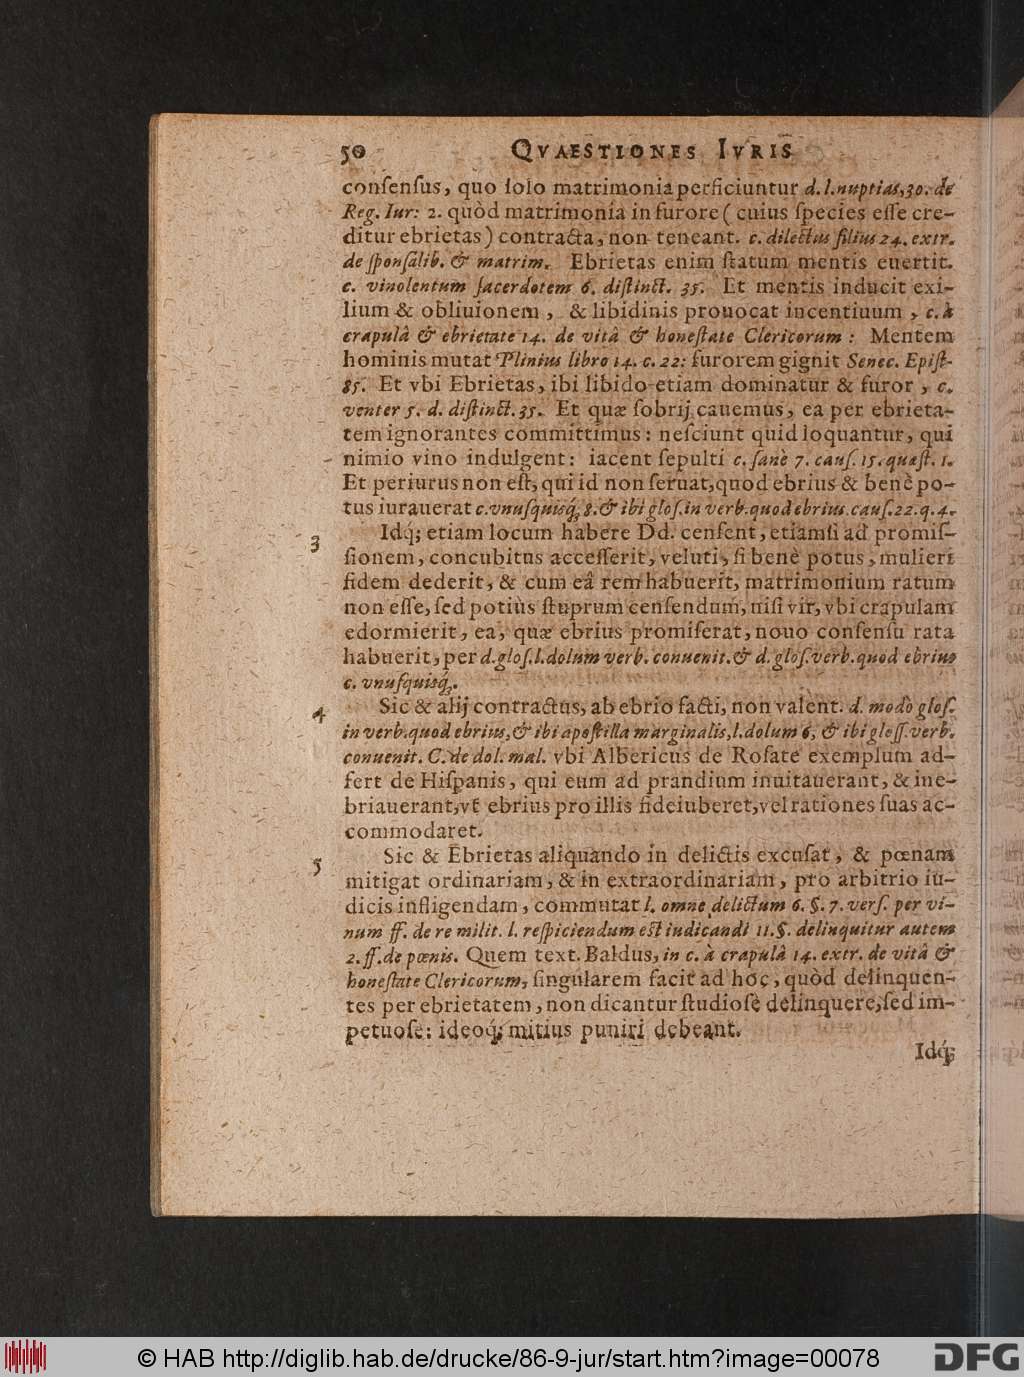 50 QVAESTIONES IVRIS
conſenſus, quo ſolo matrimonia perficiuntur d. l. nuptias, 30. de
Reg. Iur: 2. quòd matrimonia in furore (cuius ſpecies eſſe cre-
ditur ebrietas) contracta, non teneant. c. dilectus filius 24. extr.
de ſponſalib. & matrim. Ebrietas enim ſtatum mentis euertit.
c. vinolentum ſacerdotem 6. diſtinct. 35. Et mentis inducit exi-
lium & obliuionem, & libidinis prouocat incentiuum, c. à
crapulâ & ebrietate 14. de vitâ & honeſtate Clericorum: Mentem
hominis mutat Plinius libro 14. c. 22: furorem gignit Senec. Epiſt-
85. Et vbi Ebrietas, ibi libido etiam dominatur & furor, c.
venter 5. d. diſtinct. 35. Et quæ ſobrij cauemus, ea per ebrieta-
tem ignorantes committimus: neſciunt quid loquantur, qui
nimio vino indulgent: iacent ſepulti c. ſanè 7. cauſ. 15. quæſt. 1.
Et periurus non eſt, qui id non ſeruat, quod ebrius & benè po-
tus iurauerat c. vnuſquisq́; 8. & ibi gloſ. in verb. quod ebrius. cauſ. 22. q. 4.
3 Idq́; etiam locum habere Dd. cenſent, etiamſi ad promiſ-
ſionem, concubitus acceſſerit, veluti, ſi benè potus, mulieri
fidem dederit, & cum eâ rem habuerit, matrimonium ratum
non eſſe, ſed potiùs ſtuprum cenſendum, niſi vir, vbi crapulam
edormierit, ea, quæ ebrius promiſerat, nouo conſenſu rata
habuerit, per d. gloſ. l. dolum verb. conuenit. & d. gloſ. verb. quod ebrius
c. vnuſquisq́;.
4 Sic & alij contractus, ab ebrio facti, non valent. d. modò gloſ.
in verb. quod ebrius, & ibi apoſtilla marginalis, l. dolum 6, & ibi gloſſ. verb.
conuenit. C. de dol. mal. vbi Albericus de Roſate exemplum ad-
fert de Hiſpanis, qui eum ad prandium inuitauerant, & ine-
briauerant, vt ebrius pro illis fideiuberet, vel rationes ſuas ac-
commodaret.
5 Sic & Ebrietas aliquando in delictis excuſat, & pœnam
mitigat ordinariam, & in extraordinariam, pro arbitrio iu-
dicis infligendam, commutat l. omne delictum 6. §. 7. verſ. per vi-
num ff. de re milit. l. reſpiciendum eſt iudicandi 11. §. delinquitur autem
2. ff. de pœnis. Quem text. Baldus, in c. à crapulâ 14. extr. de vitâ &
honeſtate Clericorum, ſingularem facit ad hoc, quòd delinquen-
tes per ebrietatem, non dicantur ſtudioſè delinquere, ſed im-
petuoſe: ideoq́; mitius puniri debeant.
Idq́;
© HAB http://diglib.hab.de/drucke/86-9-jur/start.htm?image=00078
DFG